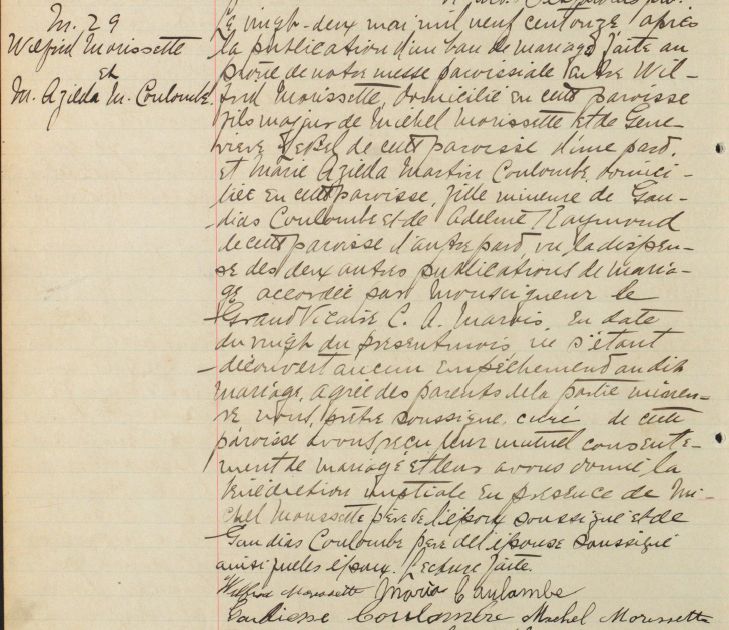 M. 29
Wilfrid Morissette
et
M. Azilda M. Coulombe
Le vingt-deux mai mil neuf cent onze après
la publication d'un ban de mariage faite au
prône de notre messe paroissiale entre Wil-
frid Morissette, domicilié en cette paroisse
fils majeur de Michel Morissette et de Gene-
vieve de cette paroisse d'une part,
et Marie Azilda Martin Coulombe domici-
liée en cette paroisse, fille mineure de Gau-
dias Coulombe et de Adeline Raymond
de cette paroisse d'autre part, vu la dispen-
se des deux autres publications de maria-
ge accordée par Monseigneur le
Grand Vicaire C. A. Marois, en date
du vingt du present mois, ne s'étant
découvert aucun empêchement au dit
mariage, agrée des parents de la partie mineu-
re nous, prêtre soussigné, curé de cette
paroisse avons reçu leur mutuel consente-
ment de mariage et leur avons donné la
bénédiction nuptiale en presence de Mi-
chel Morissette père de l'époux soussigné et de
Gaudias Coulombe père de l'épouse soussigné
ainsi que les époux. Lecture faite.
Wilfrid Morissette Maria Coulombe
Gaudiose Coulombe Michel Morissette